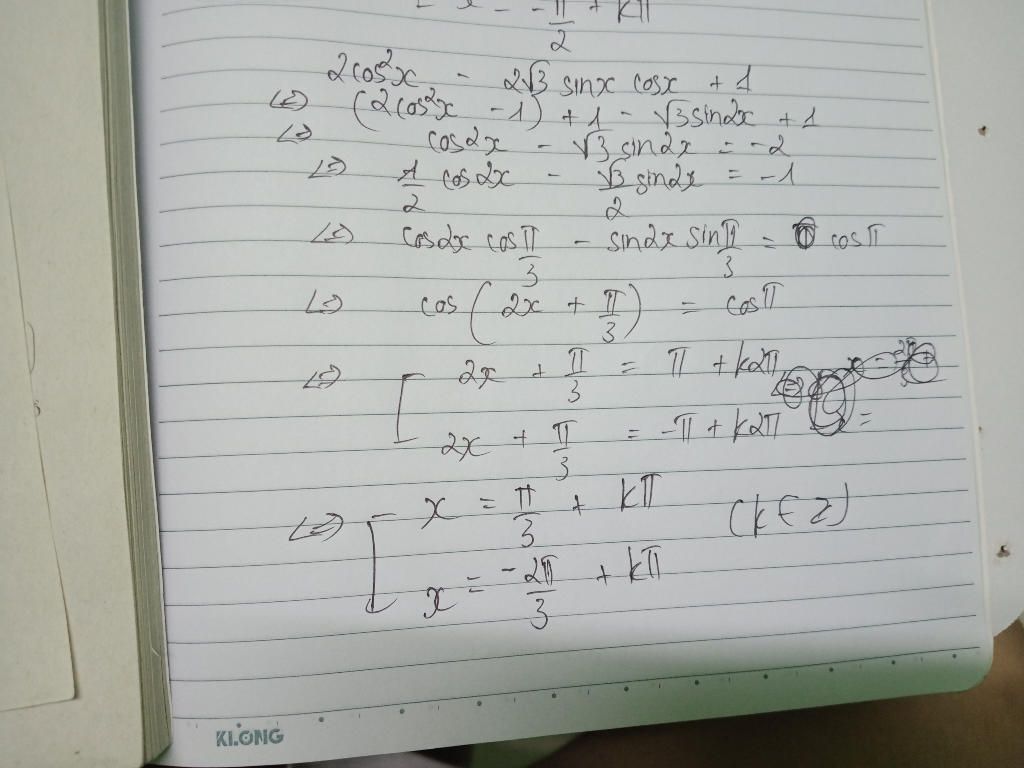 x = -π/2 + kπ
2cos²x - 2√3 sinx cosx + 1
⇔ (2cos²x - 1) + 1 - √3sin2x + 1
⇔ cos2x - √3 sin2x = -2
⇔ 1/2 cos2x - √3/2 sin2x = -1
⇔ cos2x cos π/3 - sin2x sin π/3 = cosπ
⇔ cos(2x + π/3) = cosπ
⇔ [ 2x + π/3 = π + k2π
2x + π/3 = -π + k2π =
⇔ [ x = π/3 + kπ (k ∈ Z)
x = -2π/3 + kπ
KLONG